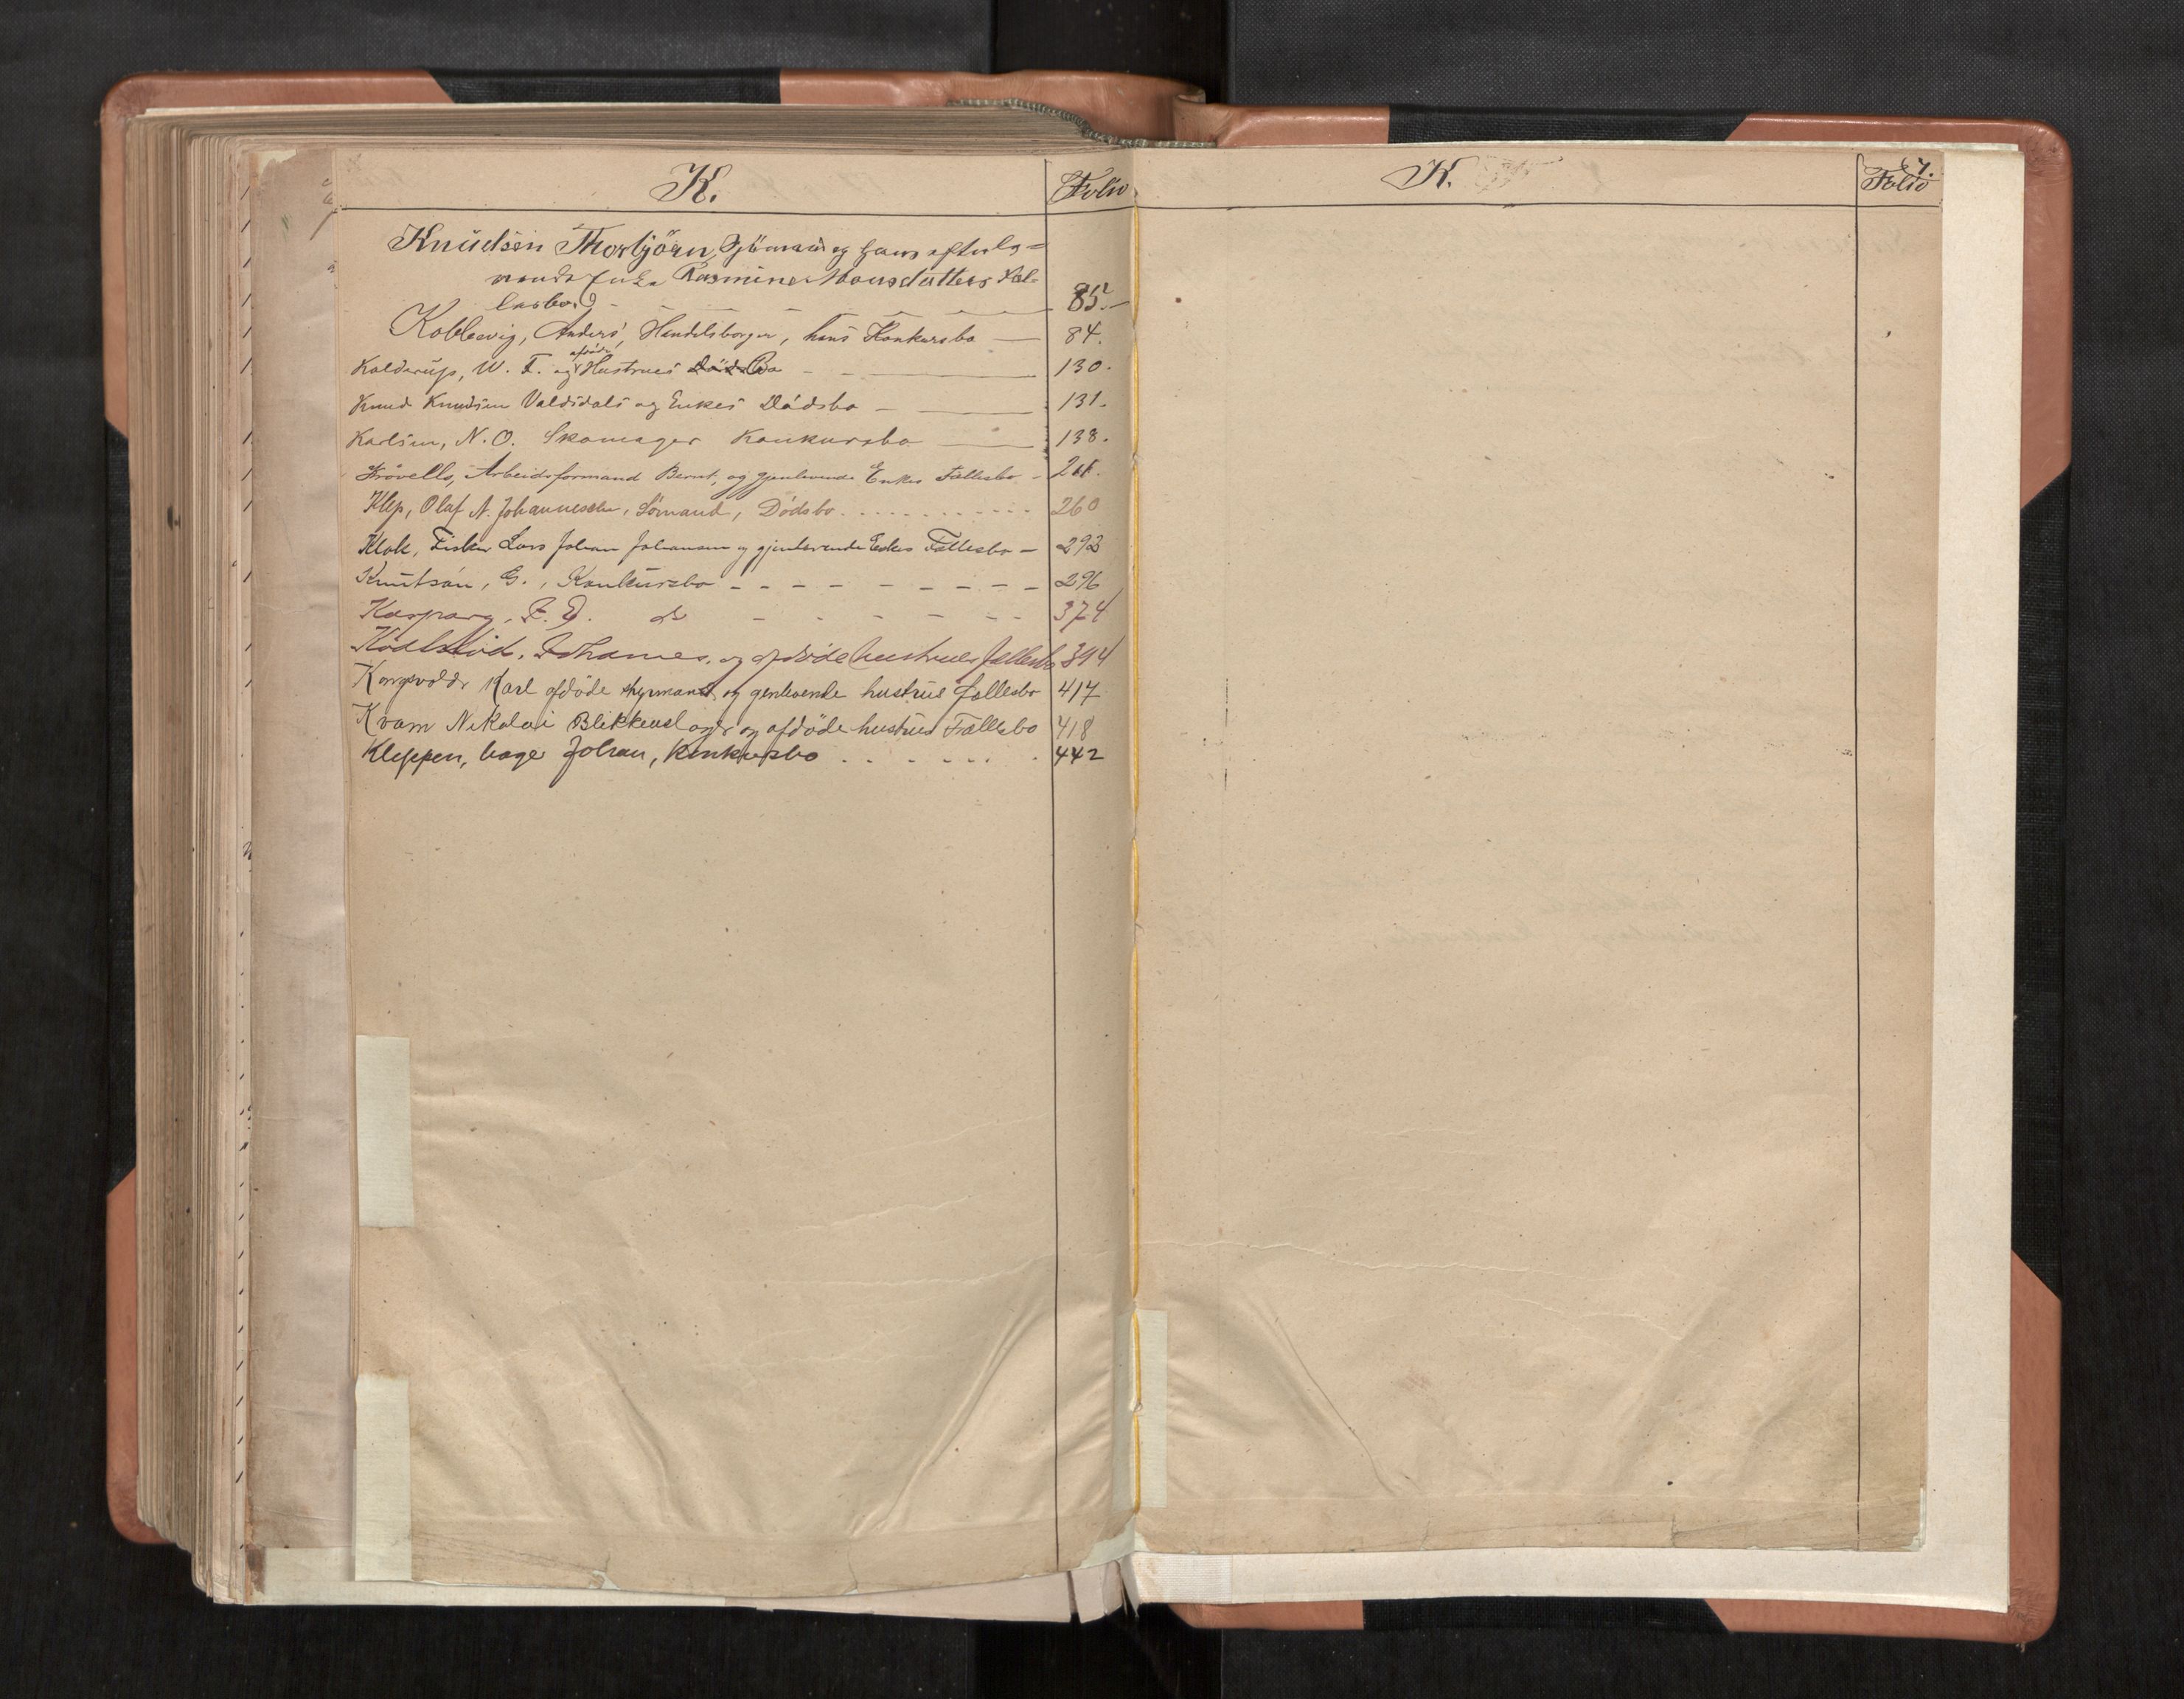 K. Folio
Knudsen Thorbjörn, Sjömand og hans efterle=
vende Enke Rasmine Monsdatters Fæl=
lesbo. 85.
Koblevig, Anders, Handelsborger, hans Konkursbo 84.
Kolderup, W. F. og afdöde Hustrues Bo 130.
Knud Knudsen Valdsdals og Enkes Dödsbo 131.
Karlsen, N. O. Skomager Konkursbo 138.
Arbeidsformand Bernt, og gjenlevende Enkes Fællesbo
Klep, Olaf N. Johannessen, Sömand, Dödsbo 260
Klok, Fisker Lars Johan Johansen og gjenlevende Enkes Fællesbo 293
Knutsön, G., Konkursbo 296
F. D. do 374
Johannes, og afdöde hustrues fællesbo 394
Karl afdöde styrmand og genlevende hustrus fællesbo 417
Kvam Nikolai Blikkenslager og afdöde hustrus Fællesbo 418
Kleppen, bager Johan, Konkursbo 442
K. Folio
67.